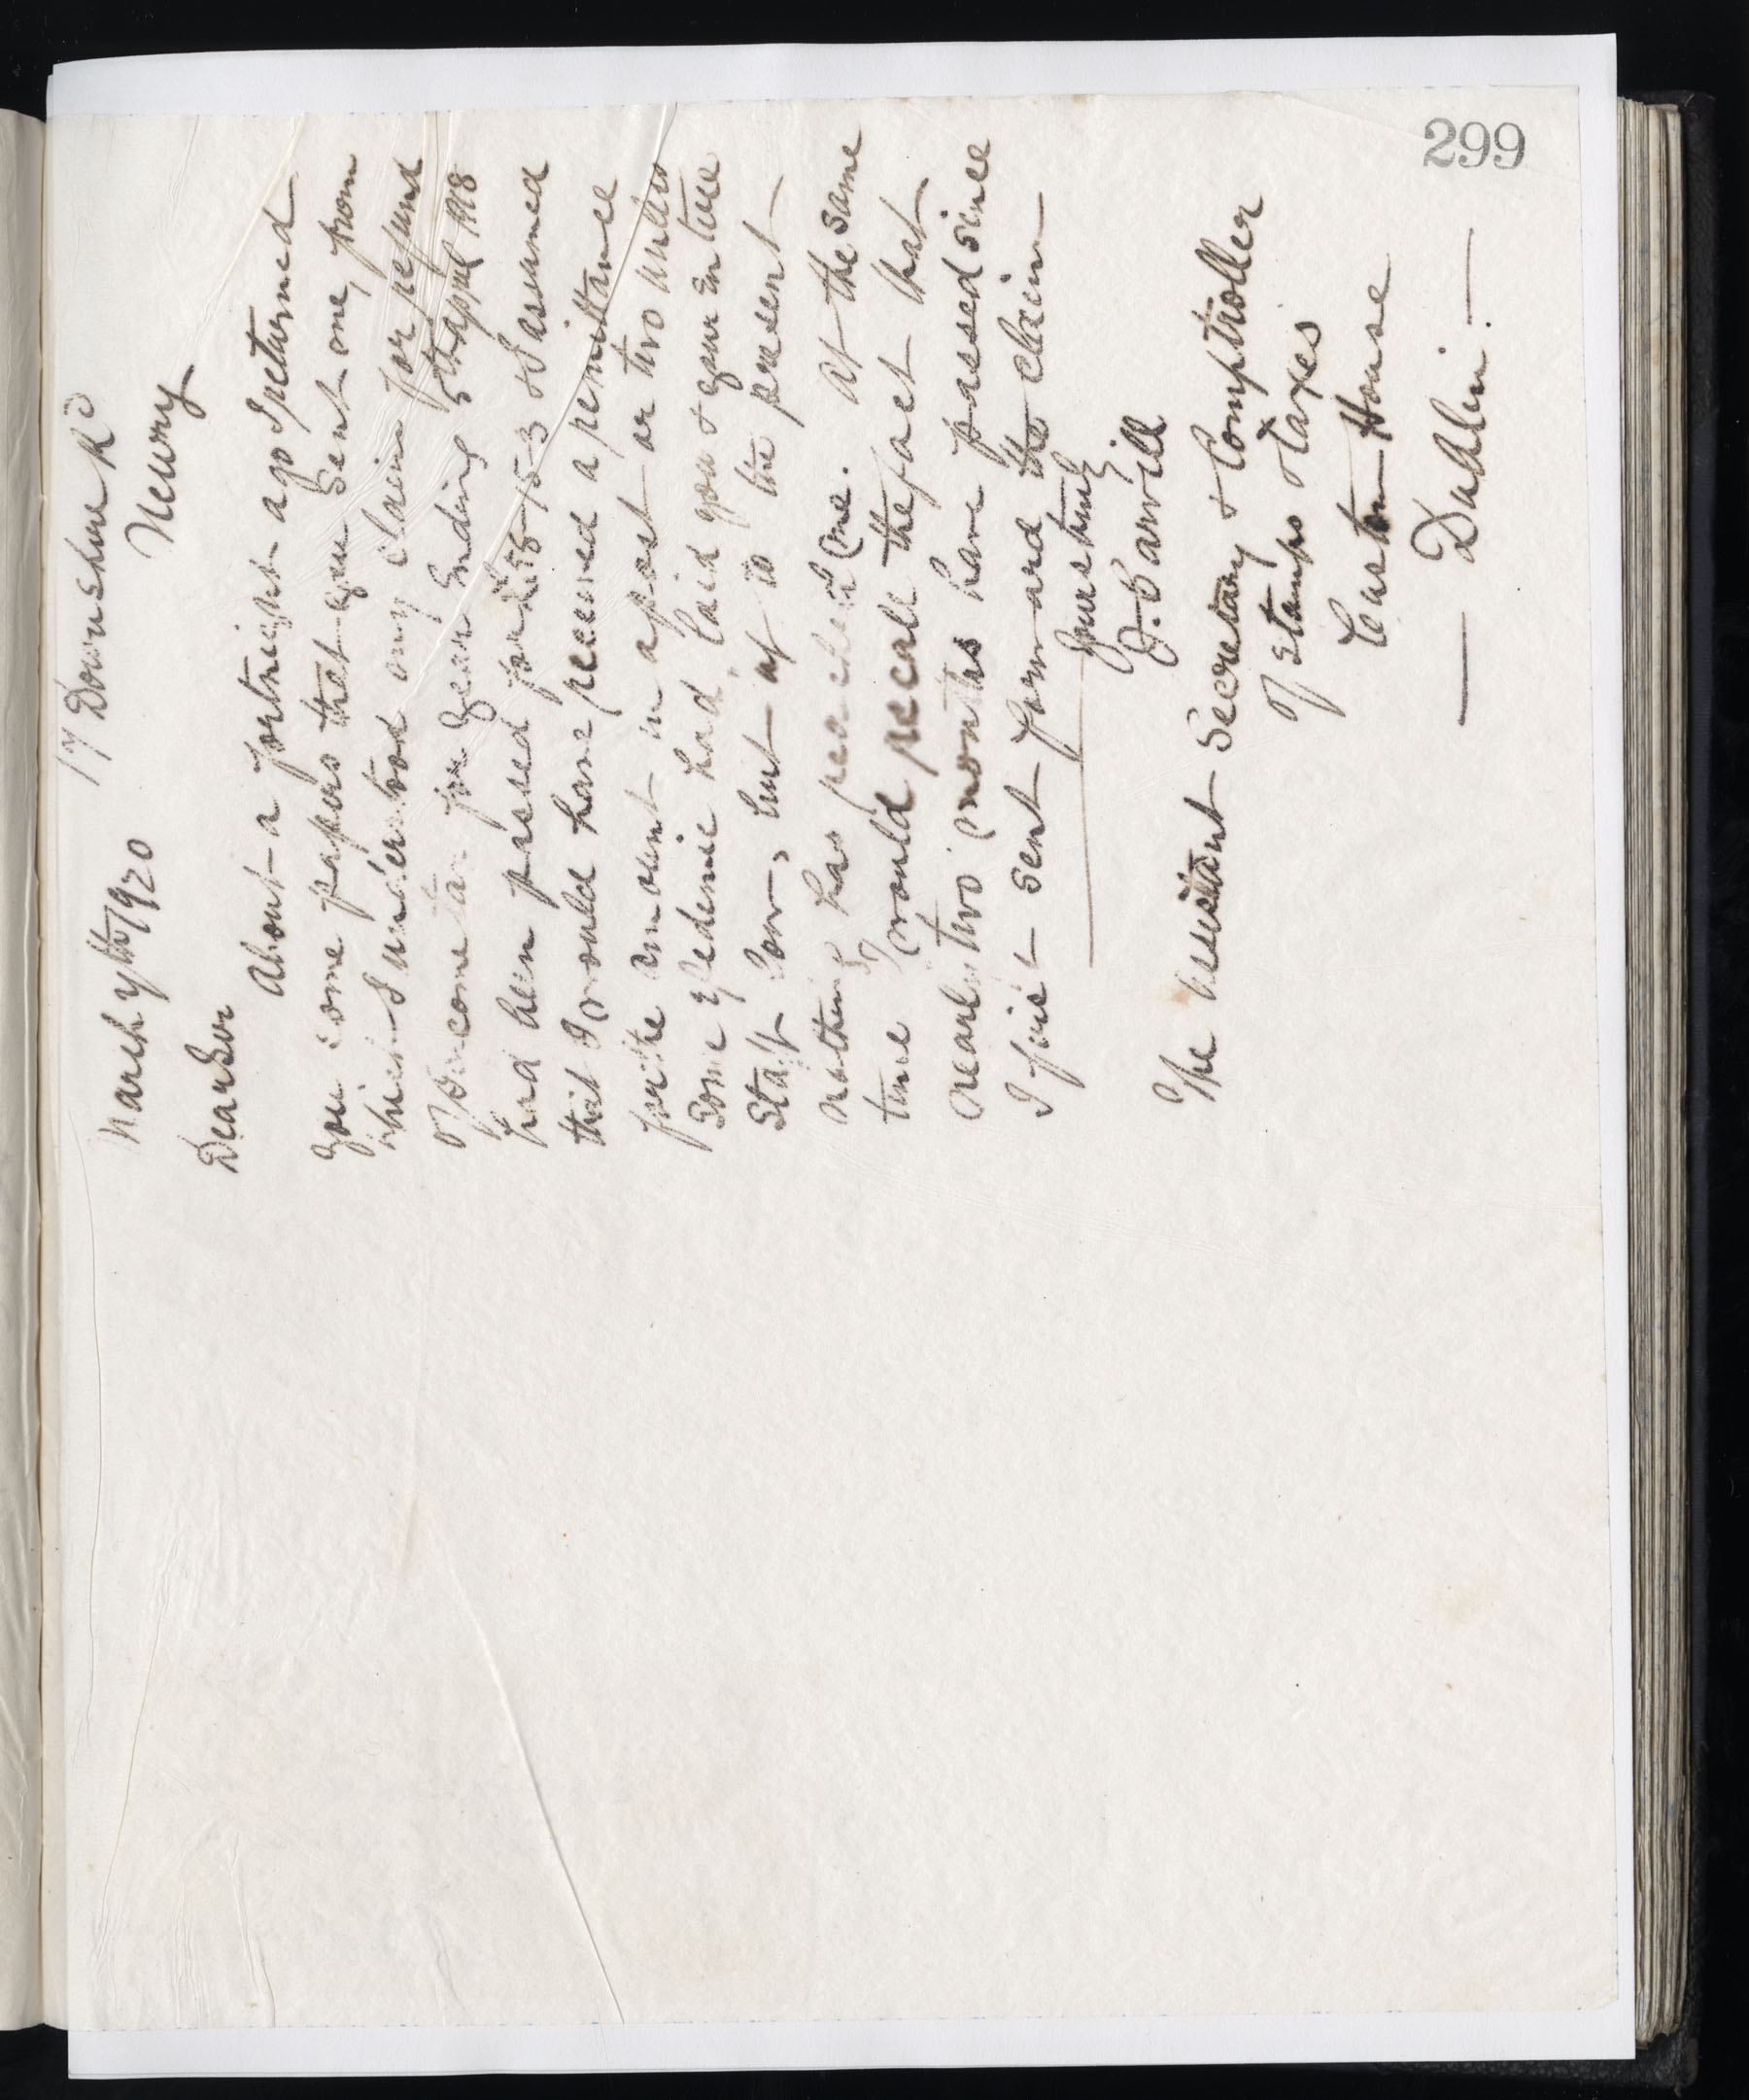 299
17 Downshire Rd
Newry
March 7th 1920
Dear Sir
About a fortnight ago I returned
you some papers that you sent me, from
which I understood my claim for refund
of Income Tax for year ending 5th april 1918
had been passed for £ & I assumed
that I would have received a remittance
for the amount in a post or two unless
some epedemic had laid you & your entire
staff low, but up to the present
nothing has reached me. At the same
time I would recall the fact that
nearly two months have passed since
I first sent forward the claim
Yours truly
J. Carvill
The Assistant Secretary & Comptroller
of Stamps & Taxes
Custom House
Dublin.